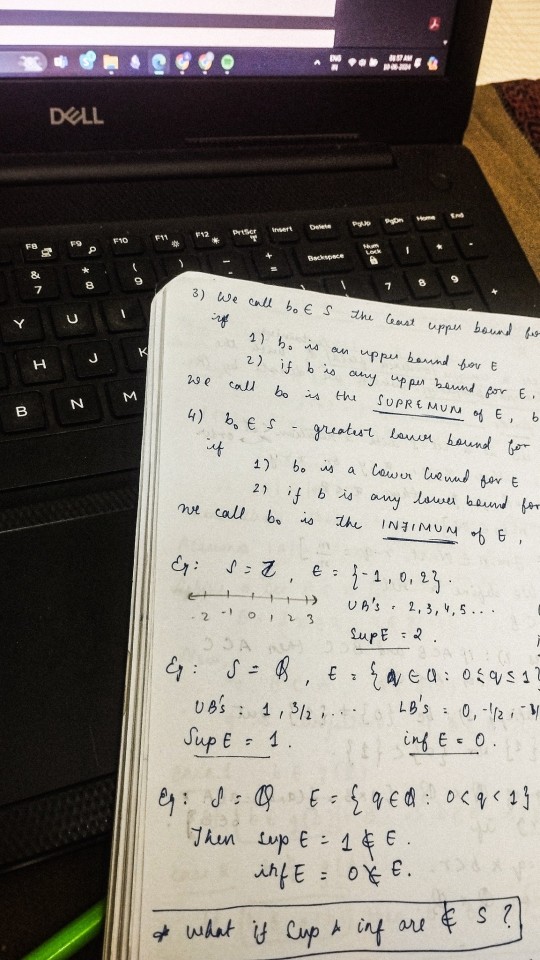 ENG
IN
01:57 AM
10-06-2024
DELL
F8 F9 F10 F11 F12 PrtScr Insert Delete PgUp PgDn Home End
& * ( ) _ + Backspace Num Lock / * -
7 8 9 - = 7 8 9 +
Y U I
H J K
B N M
3) We call b₀ ∈ S the least upper bound for
iff
1) b₀ is an upper bound for E
2) if b is any upper bound for E,
We call b₀ is the SUPREMUM of E, b
4) b₀ ∈ S - greatest lower bound for
if
1) b₀ is a lower bound for E
2) if b is any lower bound for
we call b₀ is the INFIMUM of E,
Eg: S = Z, E = {-1, 0, 2}.
-2 -1 0 1 2 3
UB's = 2, 3, 4, 5...
Sup E = 2.
Eg: S = Q, E = {q ∈ Q : 0 ≤ q ≤ 1}
UB's : 1, 3/2, ... LB's = 0, -1/2,
Sup E = 1. inf E = 0.
Eg: S = Q E = {q ∈ Q : 0 < q < 1}
Then sup E = 1 ∉ E.
inf E = 0 ∉ E.
* what if Sup & inf are ∉ S ?